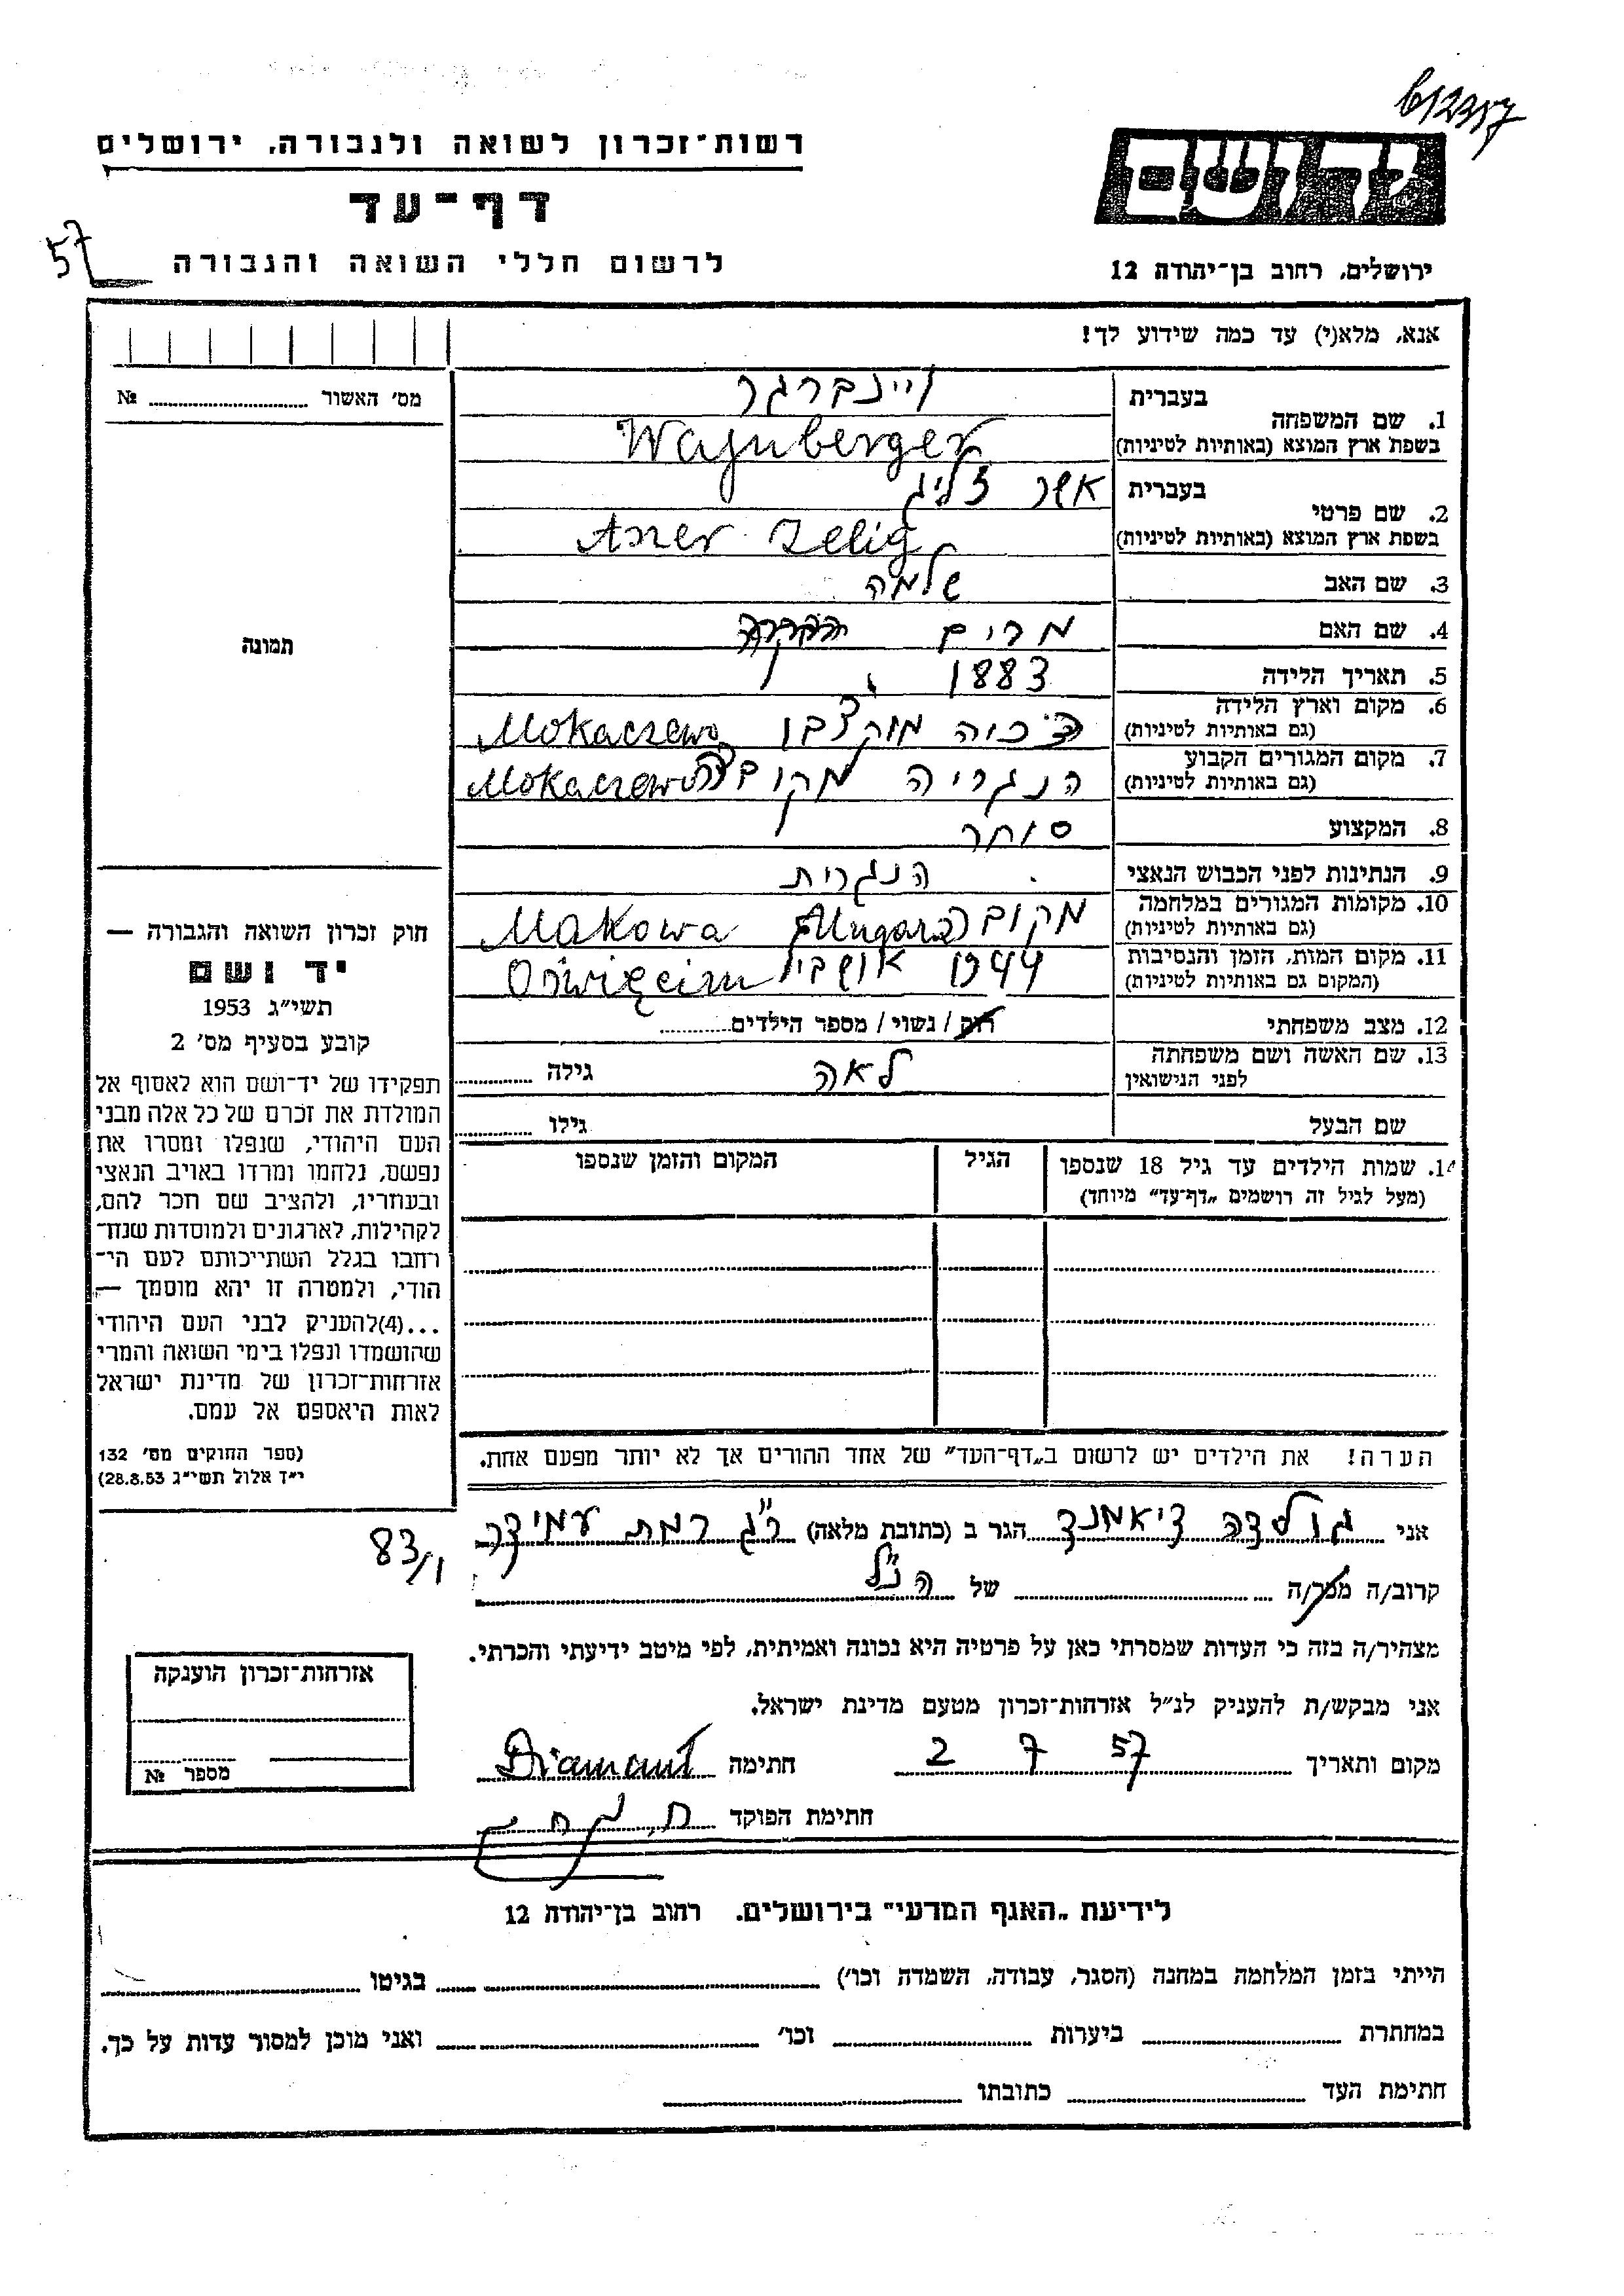 רשות־זכרון לשואה ולגבורה, ירושלים
דף־עד
לרשום חללי השואה והגבורה
57
ירושלים, רחוב בן־יהודה 12
אנא, מלא(י) עד כמה שידוע לך!
מס׳ האשור № 
בעברית ויינברגר
1. שם המשפחה
בשפת ארץ המוצא (באותיות לטיניות) Wajnberger
בעברית אשר זליג
2. שם פרטי
בשפת ארץ המוצא (באותיות לטיניות) Aszer Zelig
3. שם האב שלמה
4. שם האם מרים
5. תאריך הלידה 1883
6. מקום וארץ הלידה
(גם באותיות לטיניות) Mokaczewo
7. מקום המגורים הקבוע הנגריה
(גם באותיות לטיניות) Mokaczewo
8. המקצוע סוחר
9. הנתינות לפני הכבוש הנאצי הנגרית
10. מקומות המגורים במלחמה
(גם באותיות לטיניות) Makowa
11. מקום המות, הזמן והנסיבות 1944
(המקום גם באותיות לטיניות) Oświęcim
12. מצב משפחתי רוק / נשוי / מספר הילדים
13. שם האשה ושם משפחתה לאה גילה
לפני הנישואין
שם הבעל גילו
14. שמות הילדים עד גיל 18 שנספו הגיל המקום והזמן שנספו
(מעל לגיל זה רושמים „דף־עד" מיוחד)
הערה! את הילדים יש לרשום ב„דף־העד" של אחד ההורים אך לא יותר מפעם אחת.
תמונה
חוק זכרון השואה והגבורה —
יד ושם
תשי״ג 1953
קובע בסעיף מס׳ 2
תפקידו של יד־ושם הוא לאסוף אל
המולדת את זכרם של כל אלה מבני
העם היהודי, שנפלו ומסרו את
נפשם, נלחמו ומרדו באויב הנאצי
ובעוזריו, ולהציב שם וזכר להם,
לקהילות, לארגונים ולמוסדות שנח־
רבו בגלל השתייכותם לעם הי־
הודי, ולמטרה זו יהא מוסמך —
...(4)להעניק לבני העם היהודי
שהושמדו ונפלו בימי השואה והמרי
אזרחות־זכרון של מדינת ישראל
לאות היאספם אל עמם.
(ספר החוקים מס׳ 132
י״ד אלול תשי״ג 28.8.53)
אני גולדה דיאמנד הגר ב (כתובת מלאה) ר״ג רמת עמידר
83/1
קרוב/ה מכר/ה של הנ״ל
מצהיר/ה בזה כי העדות שמסרתי כאן על פרטיה היא נכונה ואמיתית, לפי מיטב ידיעתי והכרתי.
אני מבקש/ת להעניק לנ״ל אזרחות־זכרון מטעם מדינת ישראל.
מקום ותאריך 2 7 57 חתימה Diamant
חתימת הפוקד
אזרחות־זכרון הוענקה
מספר №
לידיעת „האגף המדעי" בירושלים. רחוב בן־יהודה 12
הייתי בזמן המלחמה במחנה (הסגר, עבודה, השמדה וכו׳) בגיטו
במחתרת ביערות וכו׳ ואני מוכן למסור עדות על כך.
חתימת העד כתובתו